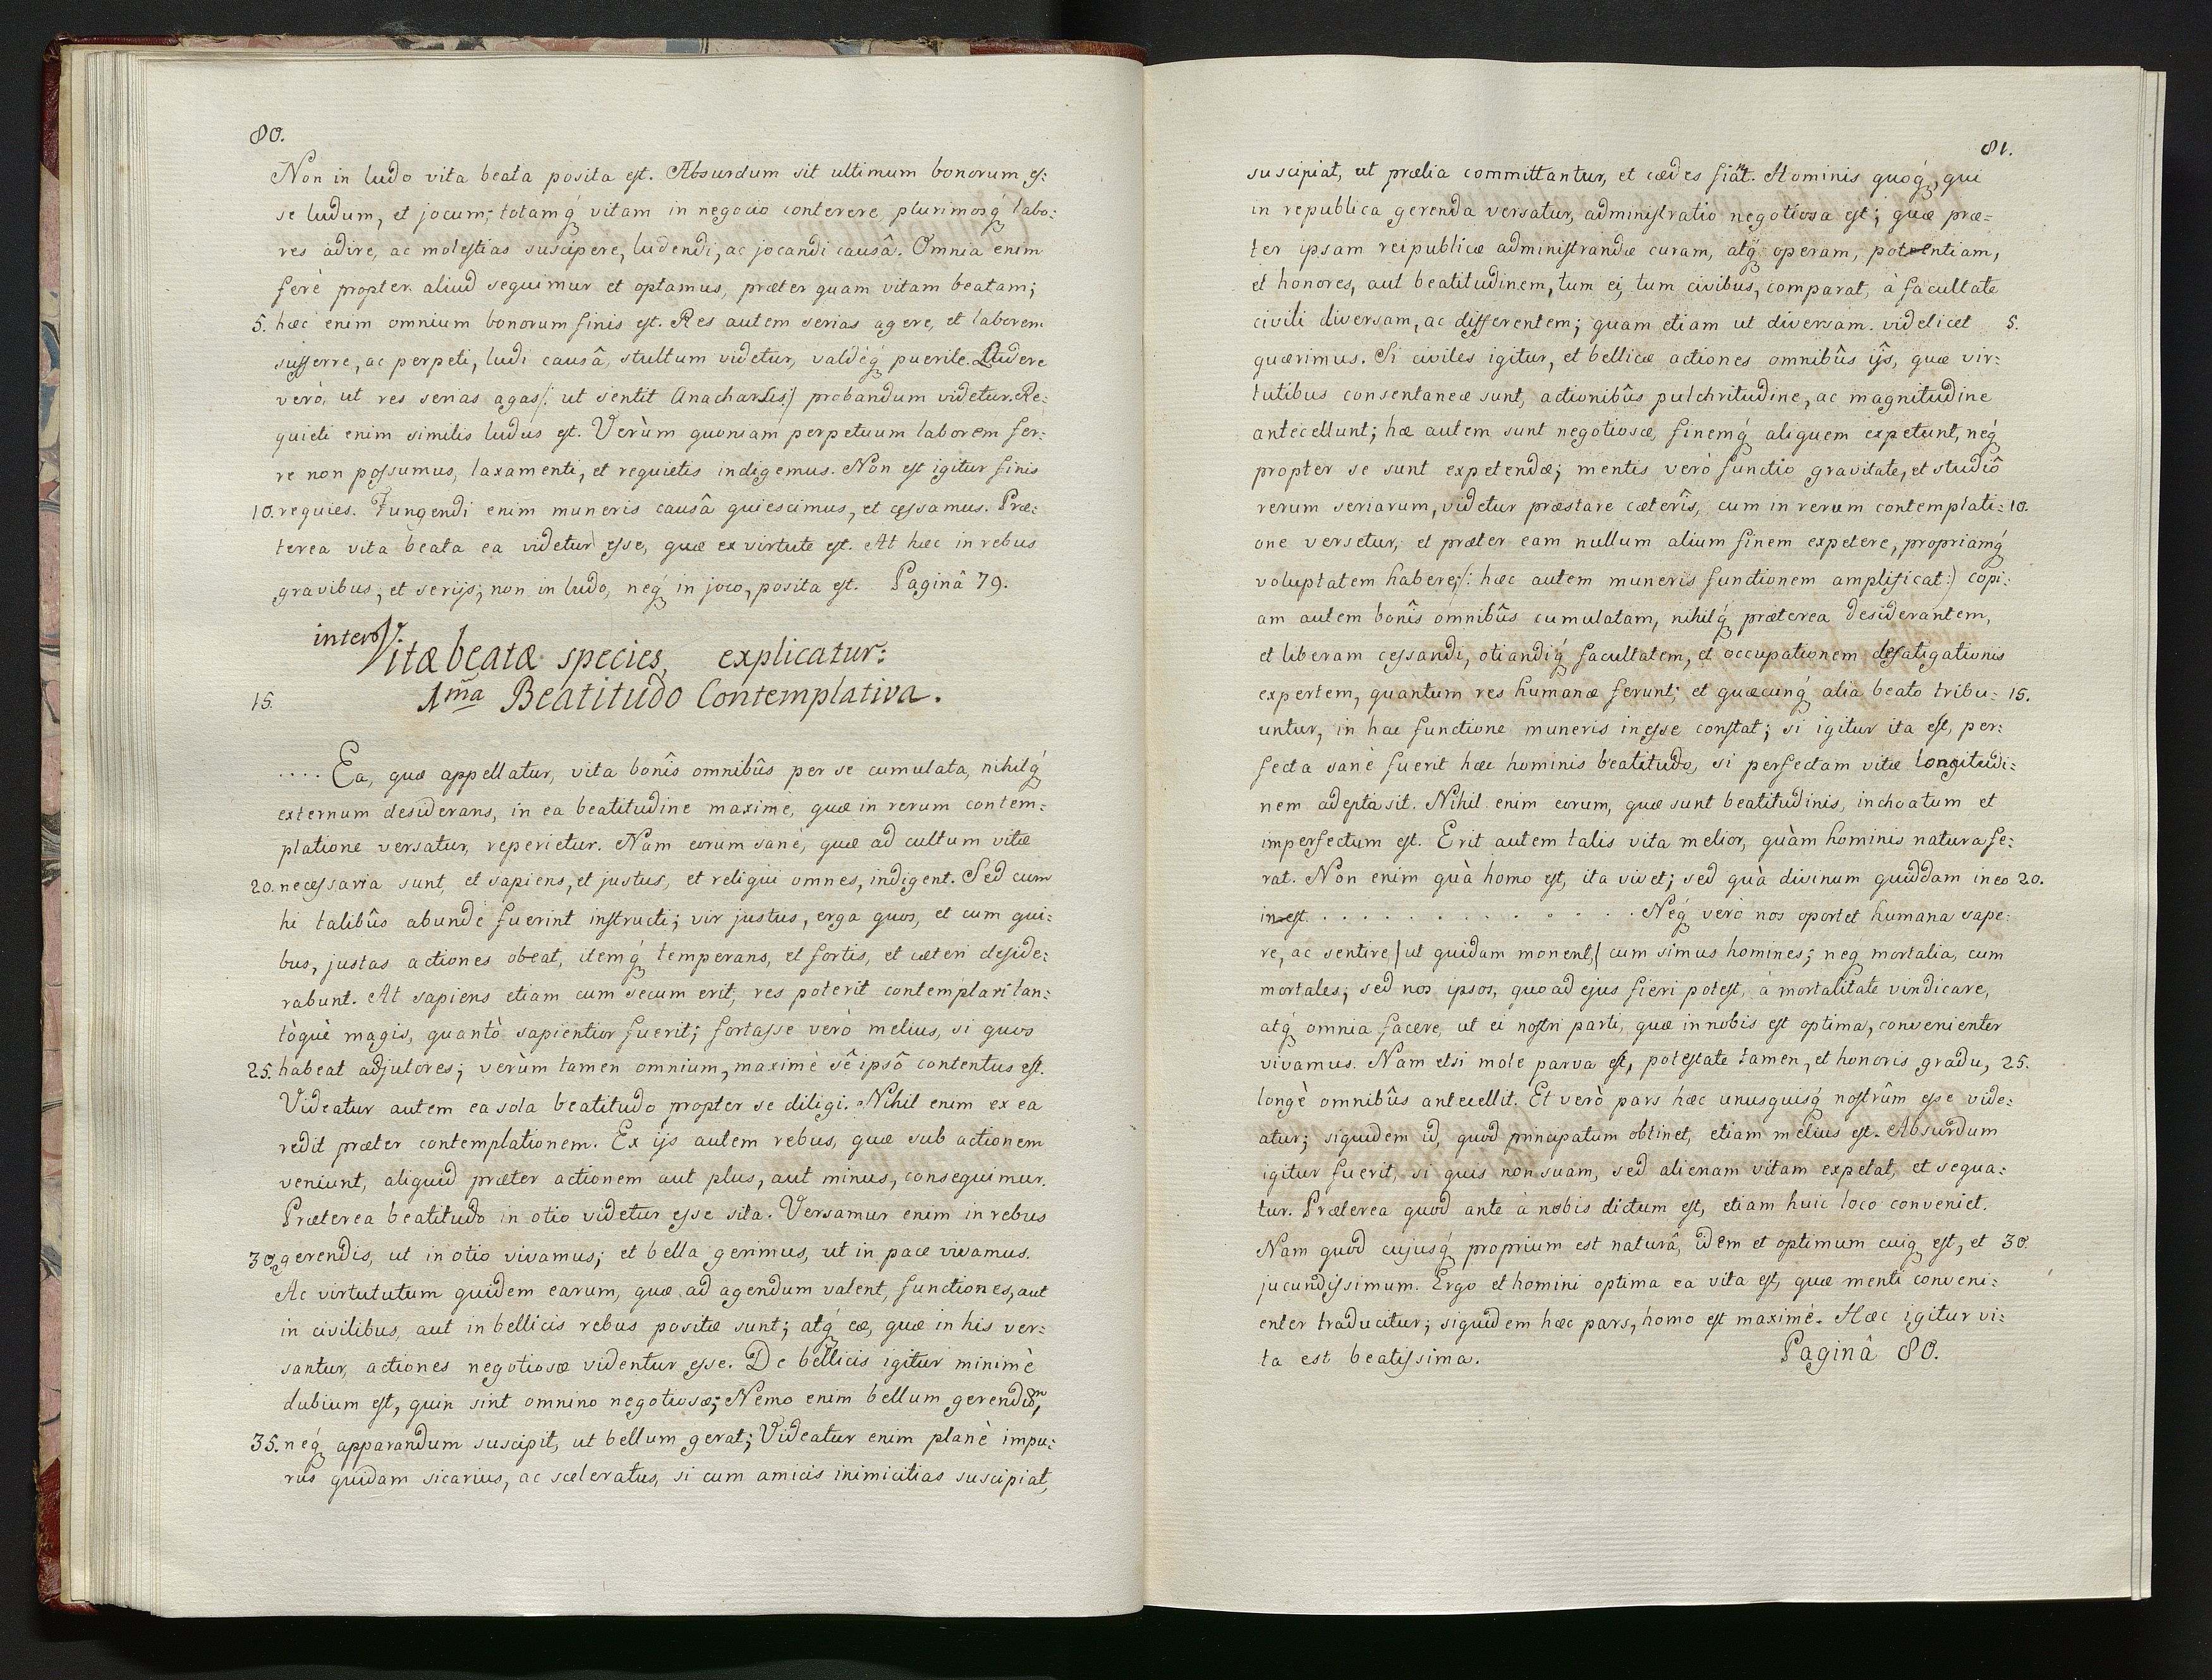 80.
Non in ludo vita beata posita est. Absurdum sit ultimum bonorum es:
se ludum, et jocum; totamq́ vitam in negocio conterere, plurimosq́ labo:
res adire, ac molestias suscipere, ludendi, ac jocandi causâ. Omnia enim
ferè propter aliud sequimur et optamus, præter quam vitam beatam;
5. hæc enim omnium bonorum finis est. Res autem serias agere, et laborem
sufferre, ac perpeti, ludi causâ, stultum videtur, valdèq́ puerile. Ludere
verò, ut res serias agas/: ut sentit Anacharsis:/ probandum videtur. Re:
quieti enim similis ludus est. Verùm quoniam perpetuum laborem fer:
re non possumus, laxamenti, et requietis indigemus. Non est igitur finis
10. requies. Fungendi enim muneris causâ quiescimus, et cessamus. Præ:
terea vita beata ea videtur esse, quæ ex virtute est. At hæc in rebus
gravibus, et serijs, non in ludo, neq́ in joco, posita est. Paginâ 79.
Vitæ beatæ species, explicatur:
15. 1ma Beatitudo Contemplativa.
.... Ea, quæ appellatur, vita bonîs omnibûs per se cumulata, nihilq́
externum desiderans, in ea beatitudine maximè, quæ in rerum contem:
platione versatur, reperietur. Nam eorum sanè, quæ ad cultum vitæ
20. necessaria sunt, et sapiens, et justus, et reliqui omnes, indigent. Sed cum
hi talibûs abundè fuerint instructi; vir justus, erga quos, et cum qui:
bus, justas actiones obeat, itemq́ temperans, et fortis, et cæteri deside:
rabunt. At sapiens etiam cum secum erit, res poterit contemplari tan:
tòquè magis, quantò sapientior fuerit; fortasse verò melius, si quos
25. habeat adjutores; verùm tamen omnium, maximè sê ipsô contentus est.
Videatur autem ea sola beatitudo propter se diligi. Nihil enim ex ea
redit præter contemplationem. Ex ijs autem rebus, quæ sub actionem
veniunt, aliquid præter actionem aut plus, aut minus, consequimur.
Præterea beatitudo in otio videtur esse sita. Versamur enim in rebus
30. gerendis, ut in otio vivamus; et bella gerimus, ut in pace vivamus.
Ac virtututum quidem earum, quæ ad agendum valent, functiones, aut
in civilibus, aut in bellicis rebus positæ sunt; atq́ eæ, quæ in his ver:
santur, actiones negotiosæ videntur esse. De bellicis igitur minimè
dubium est, quin sint omnino negotiosæ; Nemo enim bellum gerendum,
35. neq́ apparandum suscipit, ut bellum gerat; Videatur enim planè impu:
rus quidam sicarius, ac sceleratus, si cum amicis inimicitias suscipiat,
81.
suscipiat, ut prælia committantur, et cædes fiant. Hominis quoq́, qui
in republica gerenda versatur, administratio negotiosa est; quæ præ=
ter ipsam reipublicæ administrandæ curam, atq́ operam, potentiam,
et honores, aut beatitudinem, tum ei, tum civibus, comparat, à facultate
civili diversam, ac differentem; quam etiam ut diversam videlicet 5.
quærimus. Si civiles igitur, et bellicæ actiones omnibûs ijs, quæ vir:
tutibus consentaneæ sunt, actionibûs pulchritudine, ac magnitudine
antecellunt; hæ autem sunt negotiosæ, finemq́ aliquem expetunt, neq́
propter se sunt expetendæ; mentis verò functio gravitate, et studiô
rerum seriarum, videtur præstare cæterîs, cum in rerum contemplati: 10.
one versetur, et præter eam nullum alium finem expetere, propriamq́
voluptatem habere; /: hæc autem muneris functionem amplificat:) copi:
am autem bonîs omnibûs cumulatam, nihilq́ præterea desiderantem,
et liberam cessandi, otiandiq́ facultatem, et occupationem defatigationis
expertem, quantum res humanæ ferunt; et quæcunq́ alia beato tribu: 15.
untur, in hac functione muneris inesse constat; si igitur ita est, per:
fecta sanè fuerit hæc hominis beatitudo, si perfectam vitæ longitudi:
nem adepta sit. Nihil enim eorum, quæ sunt beatitudinis, inchoatum et
imperfectum est. Erit autem talis vita melior, quàm hominis natura fe:
rat. Non enim quà homo est, ita vivet; sed quà divinum quiddam in eo 20.
inest. . . . . . . . . . . . . . . Neq́ verò nos oportet humana sape:
re, ac sentire, / ut quidam monent, / cum simus homines; neq mortalia, cum
mortales; sed nos ipsos, quoad ejus fieri potest, à mortalitate vindicare,
atq́ omnia facere, ut ei nostri parti, quæ in nobis est optima, convenienter
vivamus. Nam etsi mole parva est, potestate tamen, et honoris gradu, 25.
longè omnibûs antecellit. Et verò pars hæc unusquisq́ nostrûm esse vide:
atur; siquidem id, quod principatum obtinet, etiam melius est. Absurdum
igitur fuerit, si quis non suam, sed alienam vitam expetat, et sequa:
tur. Præterea quod ante à nobis dictum est, etiam huic loco conveniet.
Nam quod cujusq́ proprium est naturâ, idem et optimum cuiq est, et 30.
jucundissimum. Ergo et homini optima ea vita est, quæ menti conveni:
enter traducitur; siquidem hæc pars, homo est maximè. Hæc igitur vi:
ta est beatissima. Paginâ 80.